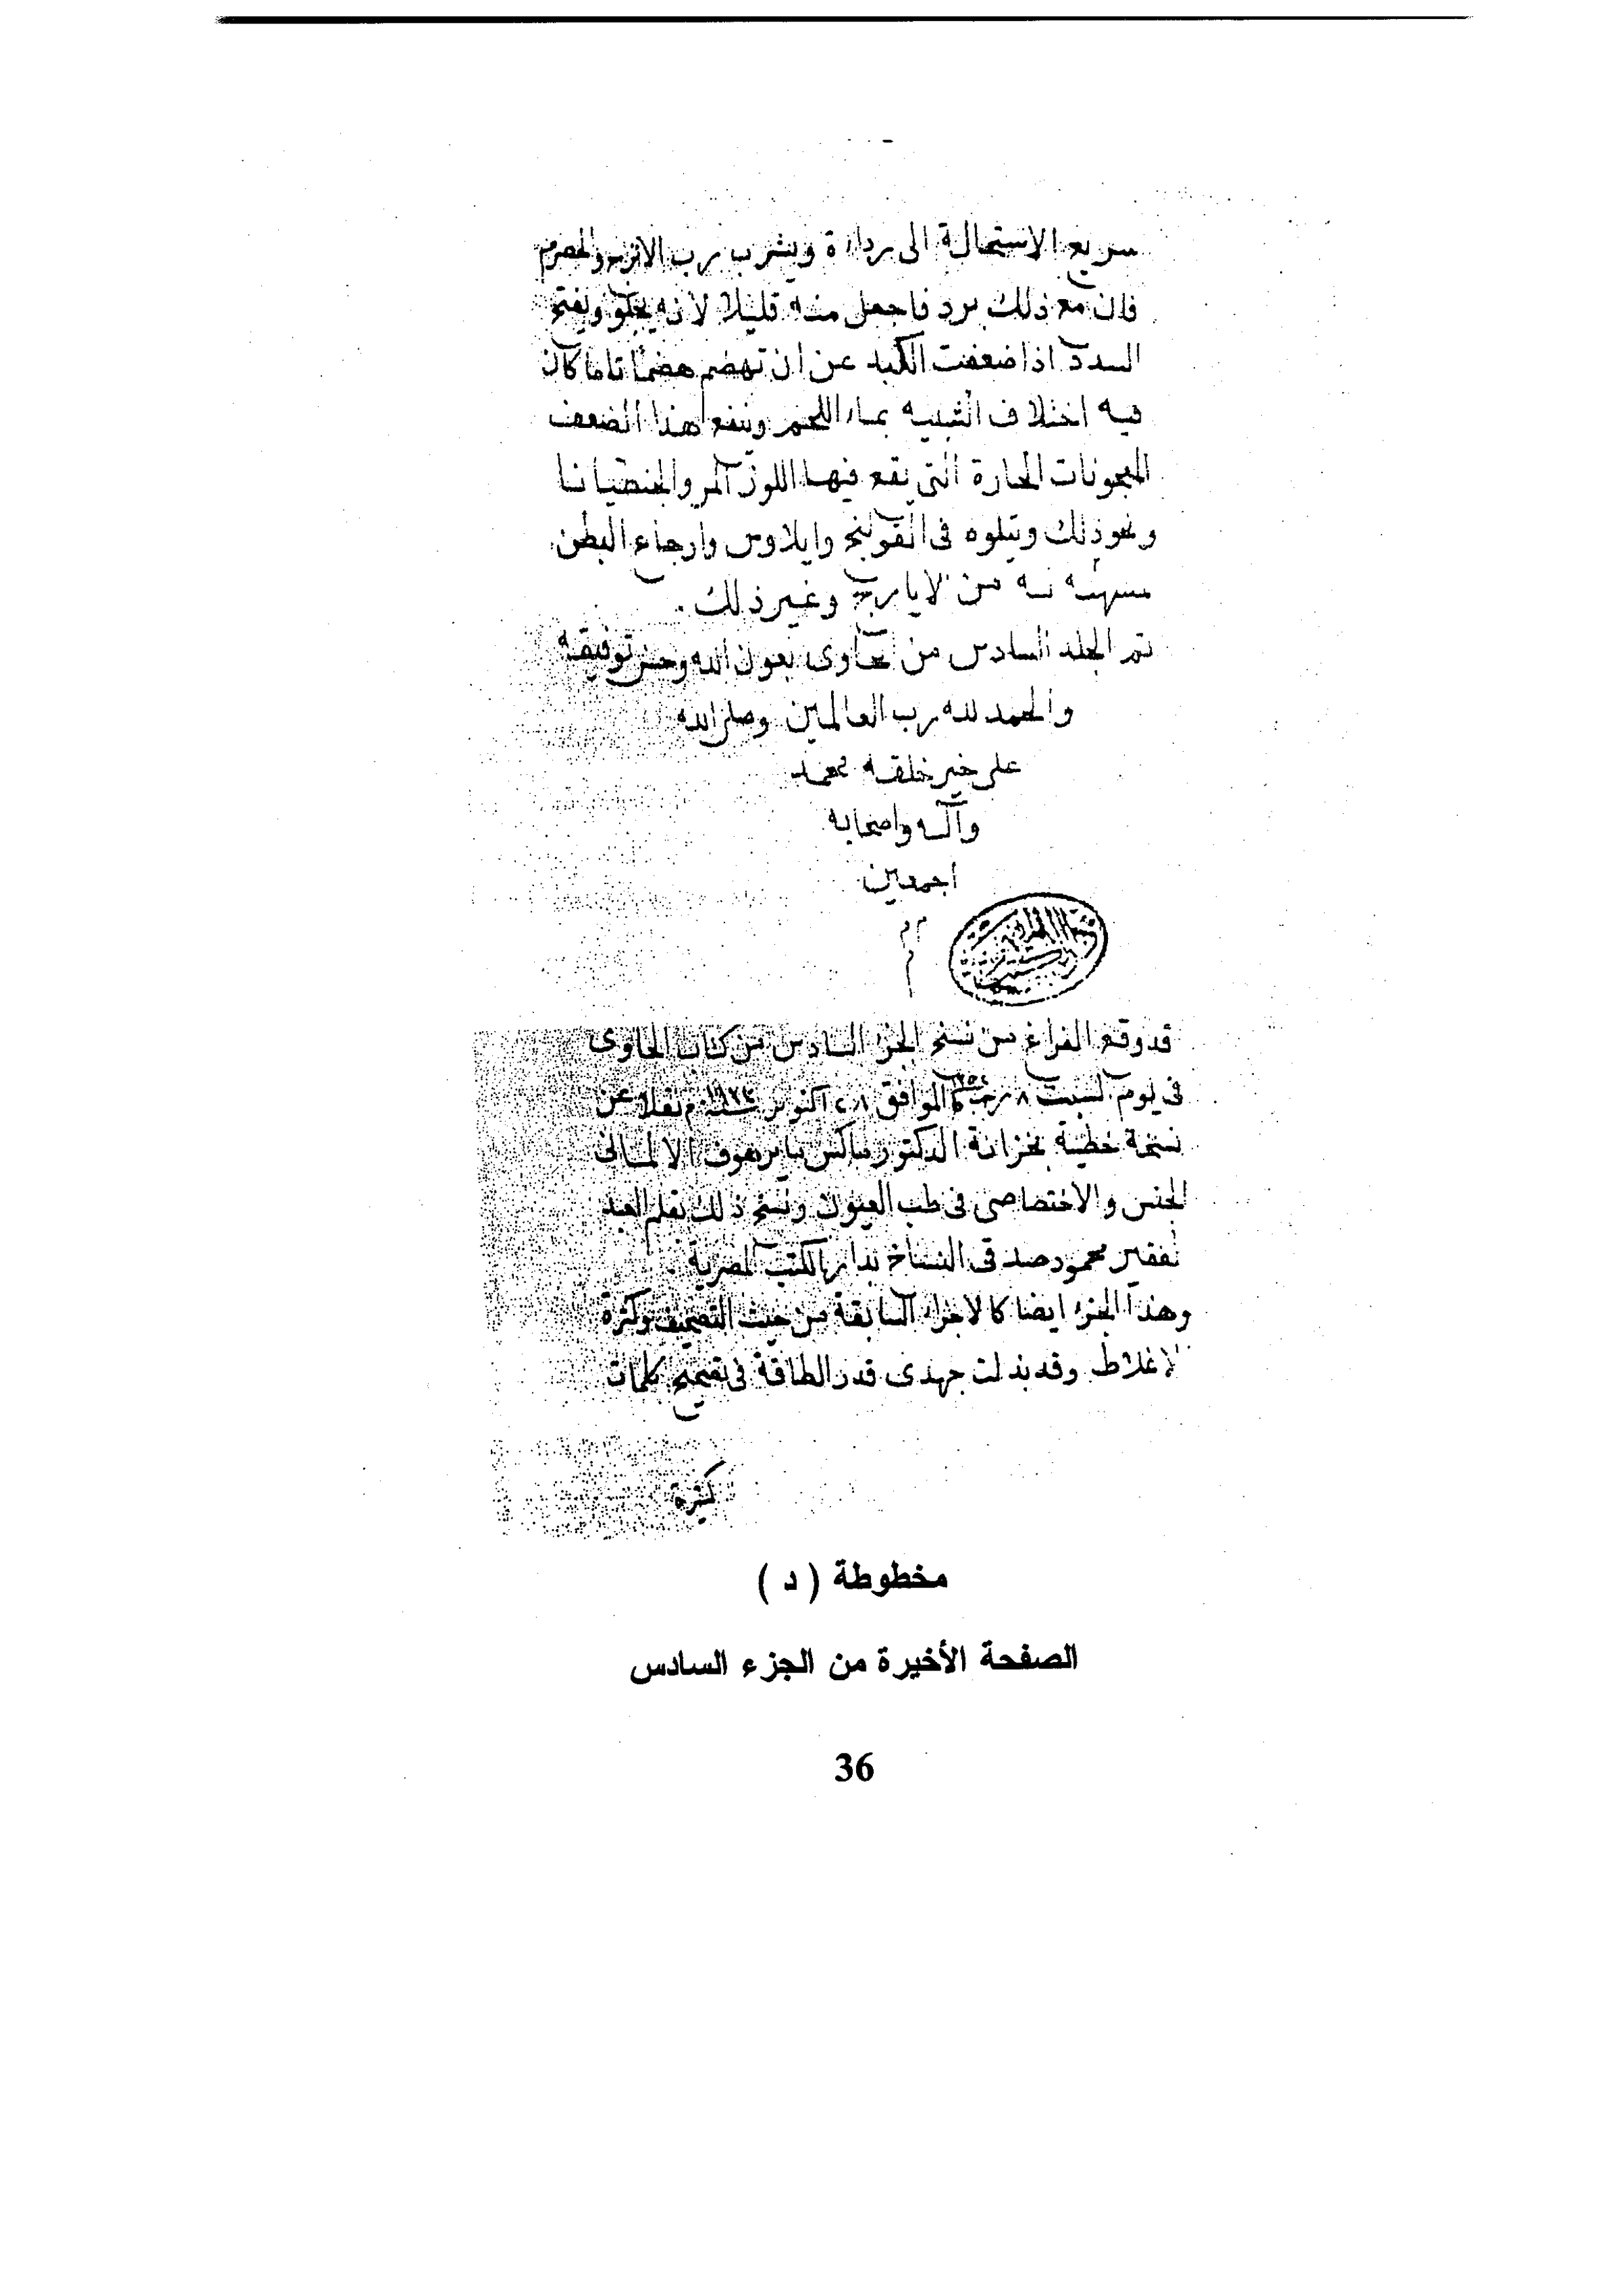 سريع الاستحالة الى رداءة ويشرب رب الاترج والحصرم
فان مع ذلك برد فاجعل منه قليلا لانه يجلو ويفتح
السدد اذا ضعفت الكبد عن ان تهضم هضما تاما كان
فيه اختلاف الشبيه بماء اللحم وينفع هذا الضعف
المعجونات الحارة التى يقع فيها اللوز المر والجنطيانا
ونحو ذلك ويتلوه فى القولنج وايلاوس واوجاع البطن
من لايارج وغير ذلك.
تم الجلد السادس من الحاوى بعون الله وحسن توفيقه
والحمد لله رب العالمين وصلى الله
على خير خلقه محمد
وآله واصحابه
اجمعين
م م
م
قد وقع الفراغ من نسخ الجزء السادس من كتاب الحاوى
فى يوم السبت ٨ رجب سنة ١٣٥٢ الموافق ٢٨ اكتوبر سنة ١٩٣٣ م نقلا عن
نسخة خطية بخزانة الدكتور ماكس مايرهوف الالمانى
الجنس والاختصاصى فى طب العيون ونسخ ذلك بقلم العبد
الفقير محمود صدقى النساخ بدار الكتب المصرية .
وهذا الجزء ايضا كالاجزاء السابقة من حيث التصحيف وكثرة
الاغلاط وقد بذلت جهدى قدر الطاقة فى تصحيح كلمات
كثيرة
مخطوطة ( د )
الصفحة الأخيرة من الجزء السادس
36